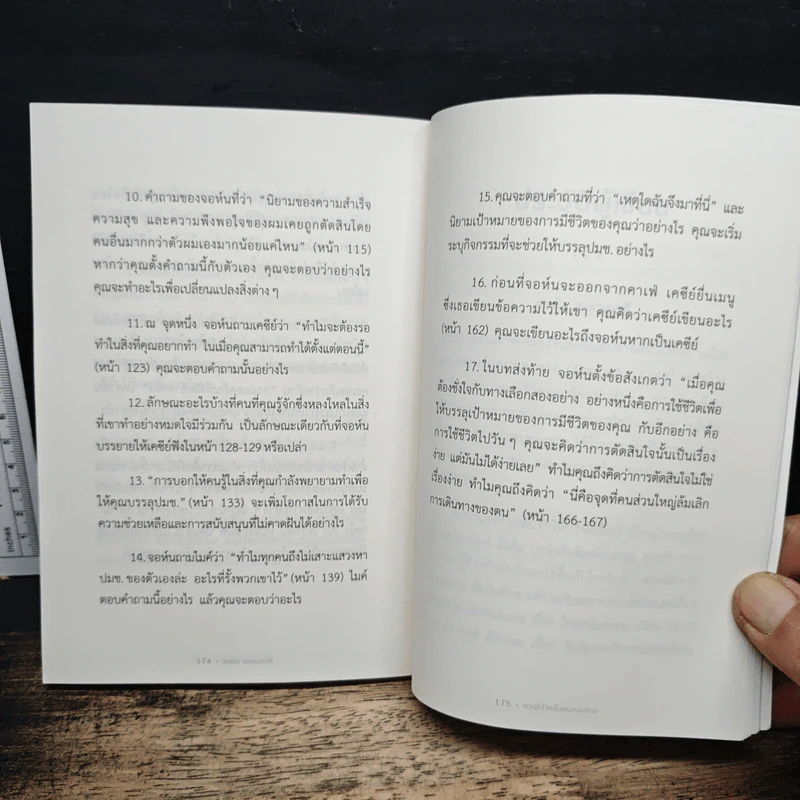 10. คำถามของจอห์นที่ว่า “นิยามของความสำเร็จ
ความสุข และความพึงพอใจของผมเคยถูกตัดสินโดย
คนอื่นมากกว่าตัวผมเองมากน้อยแค่ไหน” (หน้า 115)
หากว่าคุณตั้งคำถามนี้กับตัวเอง คุณจะตอบว่าอย่างไร
คุณจะทำอะไรเพื่อเปลี่ยนแปลงสิ่งต่าง ๆ
11. ณ จุดหนึ่ง จอห์นถามเคซีย์ว่า “ทำไมจะต้องรอ
ทำในสิ่งที่คุณอยากทำ ในเมื่อคุณสามารถทำได้ตั้งแต่ตอนนี้”
(หน้า 123) คุณจะตอบคำถามนั้นอย่างไร
12. ลักษณะอะไรบ้างที่คนที่คุณรู้จักซึ่งหลงใหลในสิ่ง
ที่เขาทำอย่างหมดใจมีร่วมกัน เป็นลักษณะเดียวกับที่จอห์น
บรรยายให้เคซีย์ฟังในหน้า 128-129 หรือเปล่า
13. “การบอกให้คนรู้ในสิ่งที่คุณกำลังพยายามทำเพื่อ
ให้คุณบรรลุปมช.” (หน้า 133) จะเพิ่มโอกาสในการได้รับ
ความช่วยเหลือและการสนับสนุนที่ไม่คาดฝันได้อย่างไร
14. จอห์นถามไมค์ว่า “ทำไมทุกคนถึงไม่เสาะแสวงหา
ปมช. ของตัวเองล่ะ อะไรที่รั้งพวกเขาไว้” (หน้า 139) ไมค์
ตอบคำถามนี้อย่างไร แล้วคุณจะตอบว่าอะไร
174 •
15. คุณจะตอบคำถามที่ว่า “เหตุใดฉันจึงมาที่นี่” และ
นิยามเป้าหมายของการมีชีวิตของคุณว่าอย่างไร คุณจะเริ่ม
ระบุกิจกรรมที่จะช่วยให้บรรลุปมช. อย่างไร
16. ก่อนที่จอห์นจะออกจากคาเฟ่ เคซีย์ยื่นเมนู
ซึ่งเธอเขียนข้อความไว้ให้เขา คุณคิดว่าเคซีย์เขียนอะไร
(หน้า 162) คุณจะเขียนอะไรถึงจอห์นหากเป็นเคซีย์
17. ในบทส่งท้าย จอห์นตั้งข้อสังเกตว่า “เมื่อคุณ
ต้องชั่งใจกับทางเลือกสองอย่าง อย่างหนึ่งคือการใช้ชีวิตเพื่อ
ให้บรรลุเป้าหมายของการมีชีวิตของคุณ กับอีกอย่าง คือ
การใช้ชีวิตไปวัน ๆ คุณจะคิดว่าการตัดสินใจนั้นเป็นเรื่อง
ง่าย แต่มันไม่ได้ง่ายเลย” ทำไมคุณถึงคิดว่าการตัดสินใจไม่ใช่
เรื่องง่าย ทำไมคุณถึงคิดว่า “นี่คือจุดที่คนส่วนใหญ่ล้มเลิก
การเดินทางของตน” (หน้า 166-167)
175 • คาเฟ่สำหรับคนหลงทาง
inches